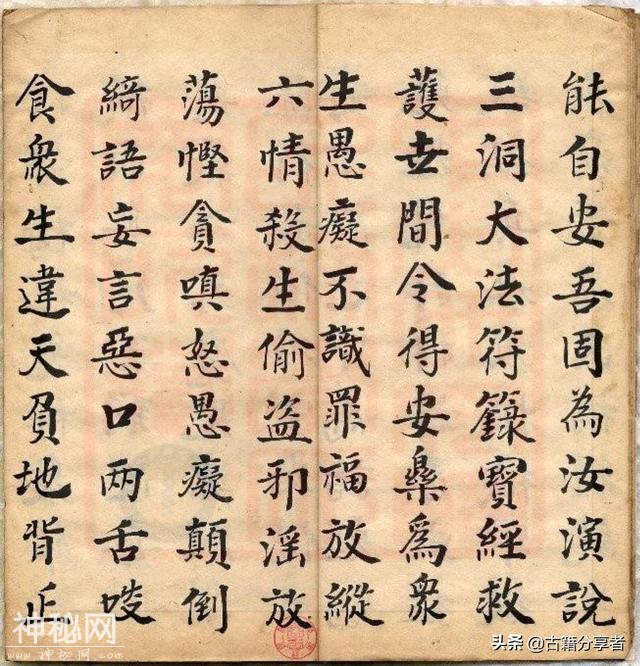 能自安吾固為汝演說
三洞大法符籙寶經救
護世間令得安樂爲衆
生愚癡不識罪福放縱
六情殺生偷盗邪淫放
蕩慳貪嗔怒愚癡顛倒
綺語妄言惡口两舌啖
食衆生違天負地背正
神秘网
www.神秘网.com
头条 @古籍分享者